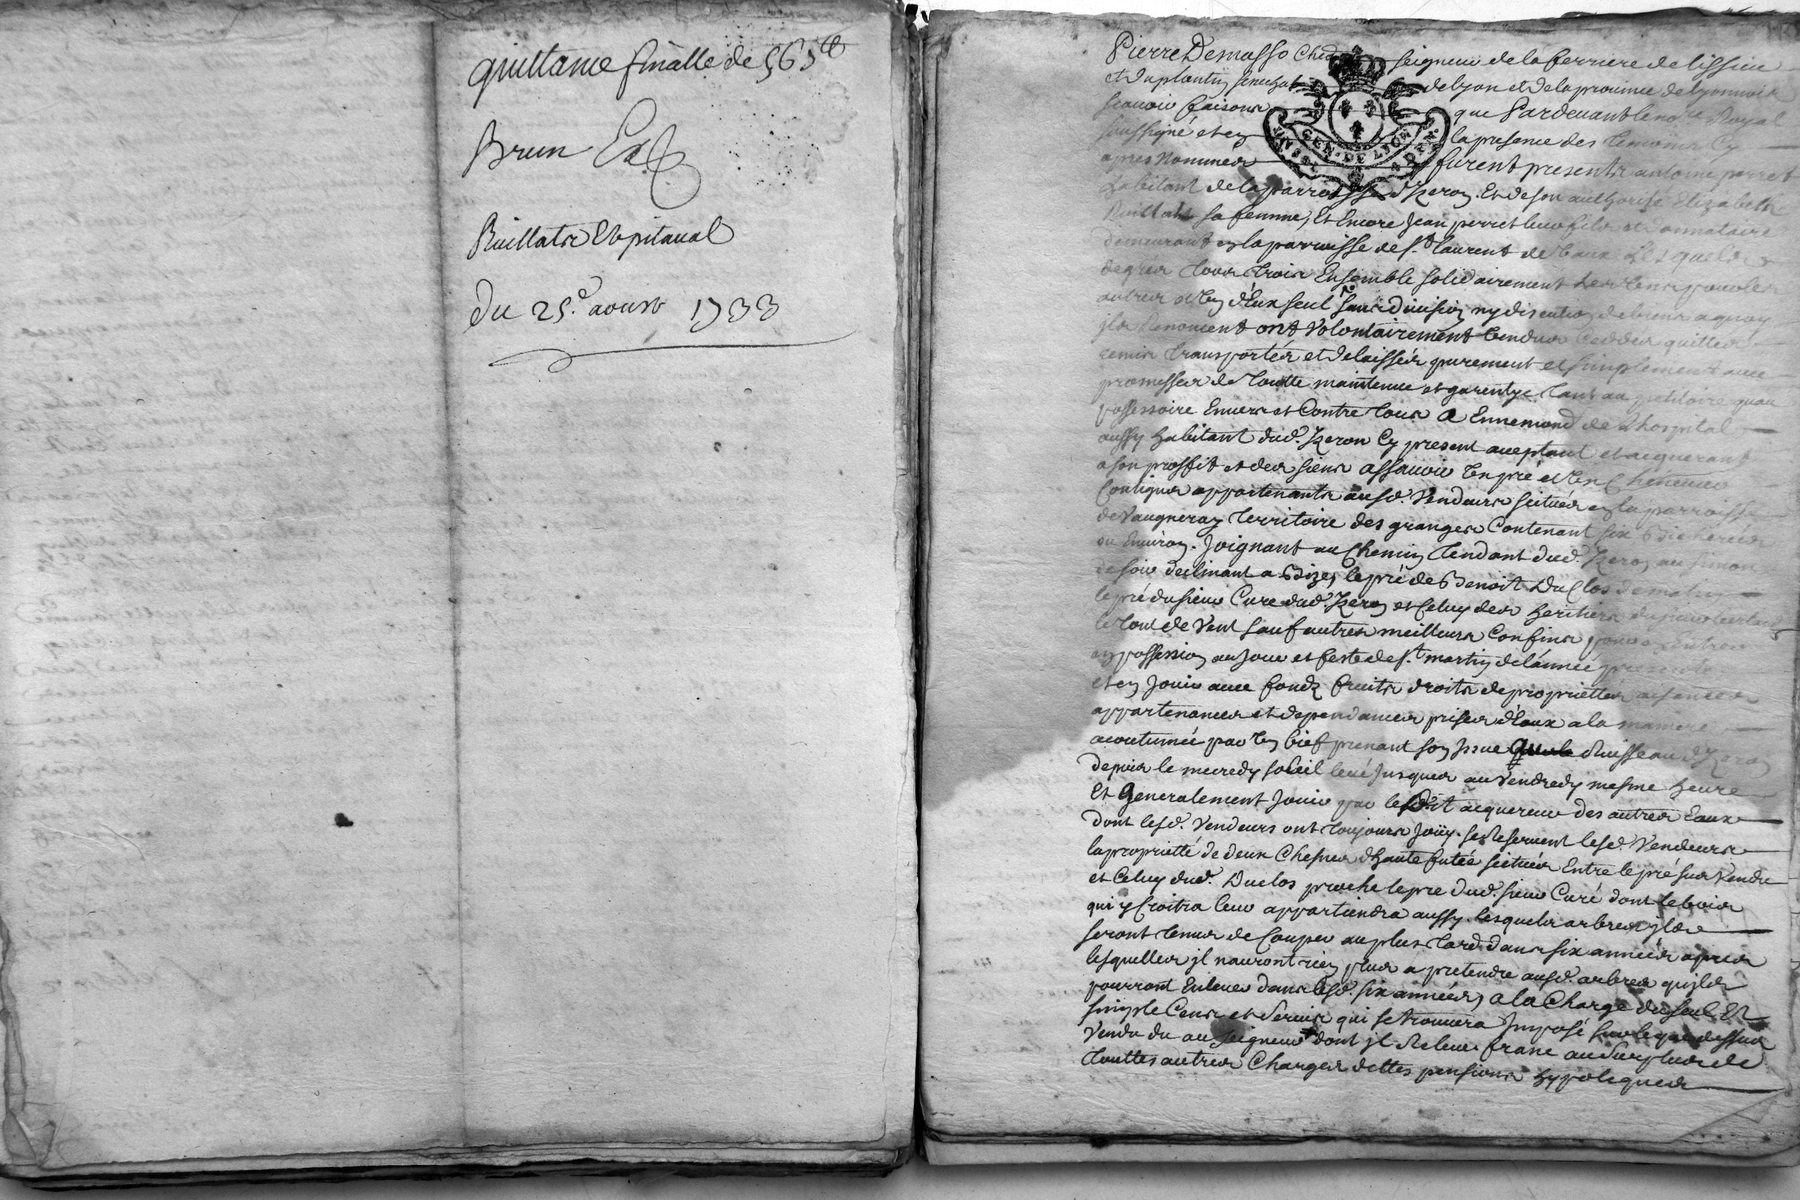 quittance finalle de 565ᵗᵗ
Brun Ex
Ruillatre Lhpitaual
du 25ᵉ aoust 1733
Pierre Demasso Cheᵛ seigneur de la ferriere de lissieu
et du plantin senechal de Lyon et de la prouince de Lyonnois
scauoir faisons que Pardeuant le noʳᵉ Royal
soussigné et en la presence des temoins Cy
apres Nommes furent presents antoine perret
habitant de la parroisse d'Izeron, Et de son authorité Elizabeth
sa femme, Et Encore Jean perret leur fils et donnataire
demeurant en la parroisse de sᵗ laurent de Vaux Lesquels
de gres tous trois Ensemble solidairement
d'Eux seul sans diuision ny discution de biens a quoy
ils Renoncent ont Volontairement Vendus Ceddes quittes
remis transportés et delaissés purement et simplement auec
promesses de toutte maintenue et garentye tant au petitoire quau
possessoire Enuers et Contre tous A Ennemond de Lhospital
aussy habitant dudᵗ Izeron Cy present aceptant et acquerant
a son proffit et des siens assauoir Un pré et Un Cheneuier
Contigus appartenants ausdᵗ Vendeurs scitués en la parroisse
de Vaugneray territoire des granges Contenant six Bicherees
ou Enuiron. Joignant au Chemin tendant dudᵗ Izeron
de soir declinant a Bize, le pré de Benoit Du Clos de matin
le pré du sieur Cure dudᵗ Izeron et Celuy des heritiers du sieur
le tout de Vent sauf autres meilleurs Confins pour Entrer
en possession au Jour et feste de sᵗ martin de l'année presente
et en Jouir auec fonds fruits droits de proprietter aisances
appartenances et dependances prises d'Eaux a la maniere
acoutumée par Un bief prenant son Issue Ruisseau d'Izeron
depuis le mecredy soleil leué Jusques au Vendredy mesme heure
Et Generalement Jouir par ledit acquereur des autres Eaux
dont lesdᵗ Vendeurs ont toujours Jouy. se Reseruent lesdᵗ Vendeurs
la proprietté de deux Chesnes d'haute futée scitués Entre le pré sus Vendu
et Celuy dudᵗ Duclos proche le pre dudᵗ sieur Curé dont le bois
qui y Croitra leur appartiendra aussy lesquels arbres ils
seront tenus de Couper au plus tard dans six années apres
lesquelles jl nauront rien plus a pretendre ausdᵗ arbres quils
pourront Enleuer dans lesdᵗ six années, a la Charge du seul Et
simple Cens et seruis qui se trouuera Imposé sur le pré dessus
Vendu du au seigneur dont jl Releue franc au surplus de
touttes autres Charges dettes pensions hypoteques